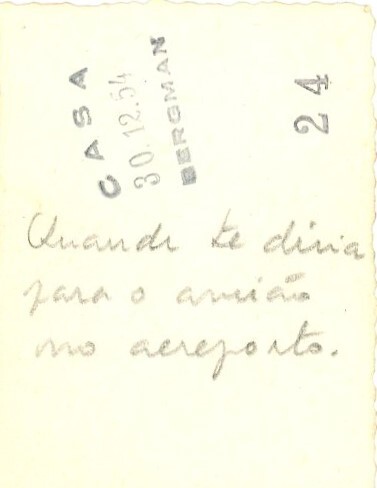 CASA
30.12.54
BERGMAN
24
Quando te diria
para o avião
no aeroporto.